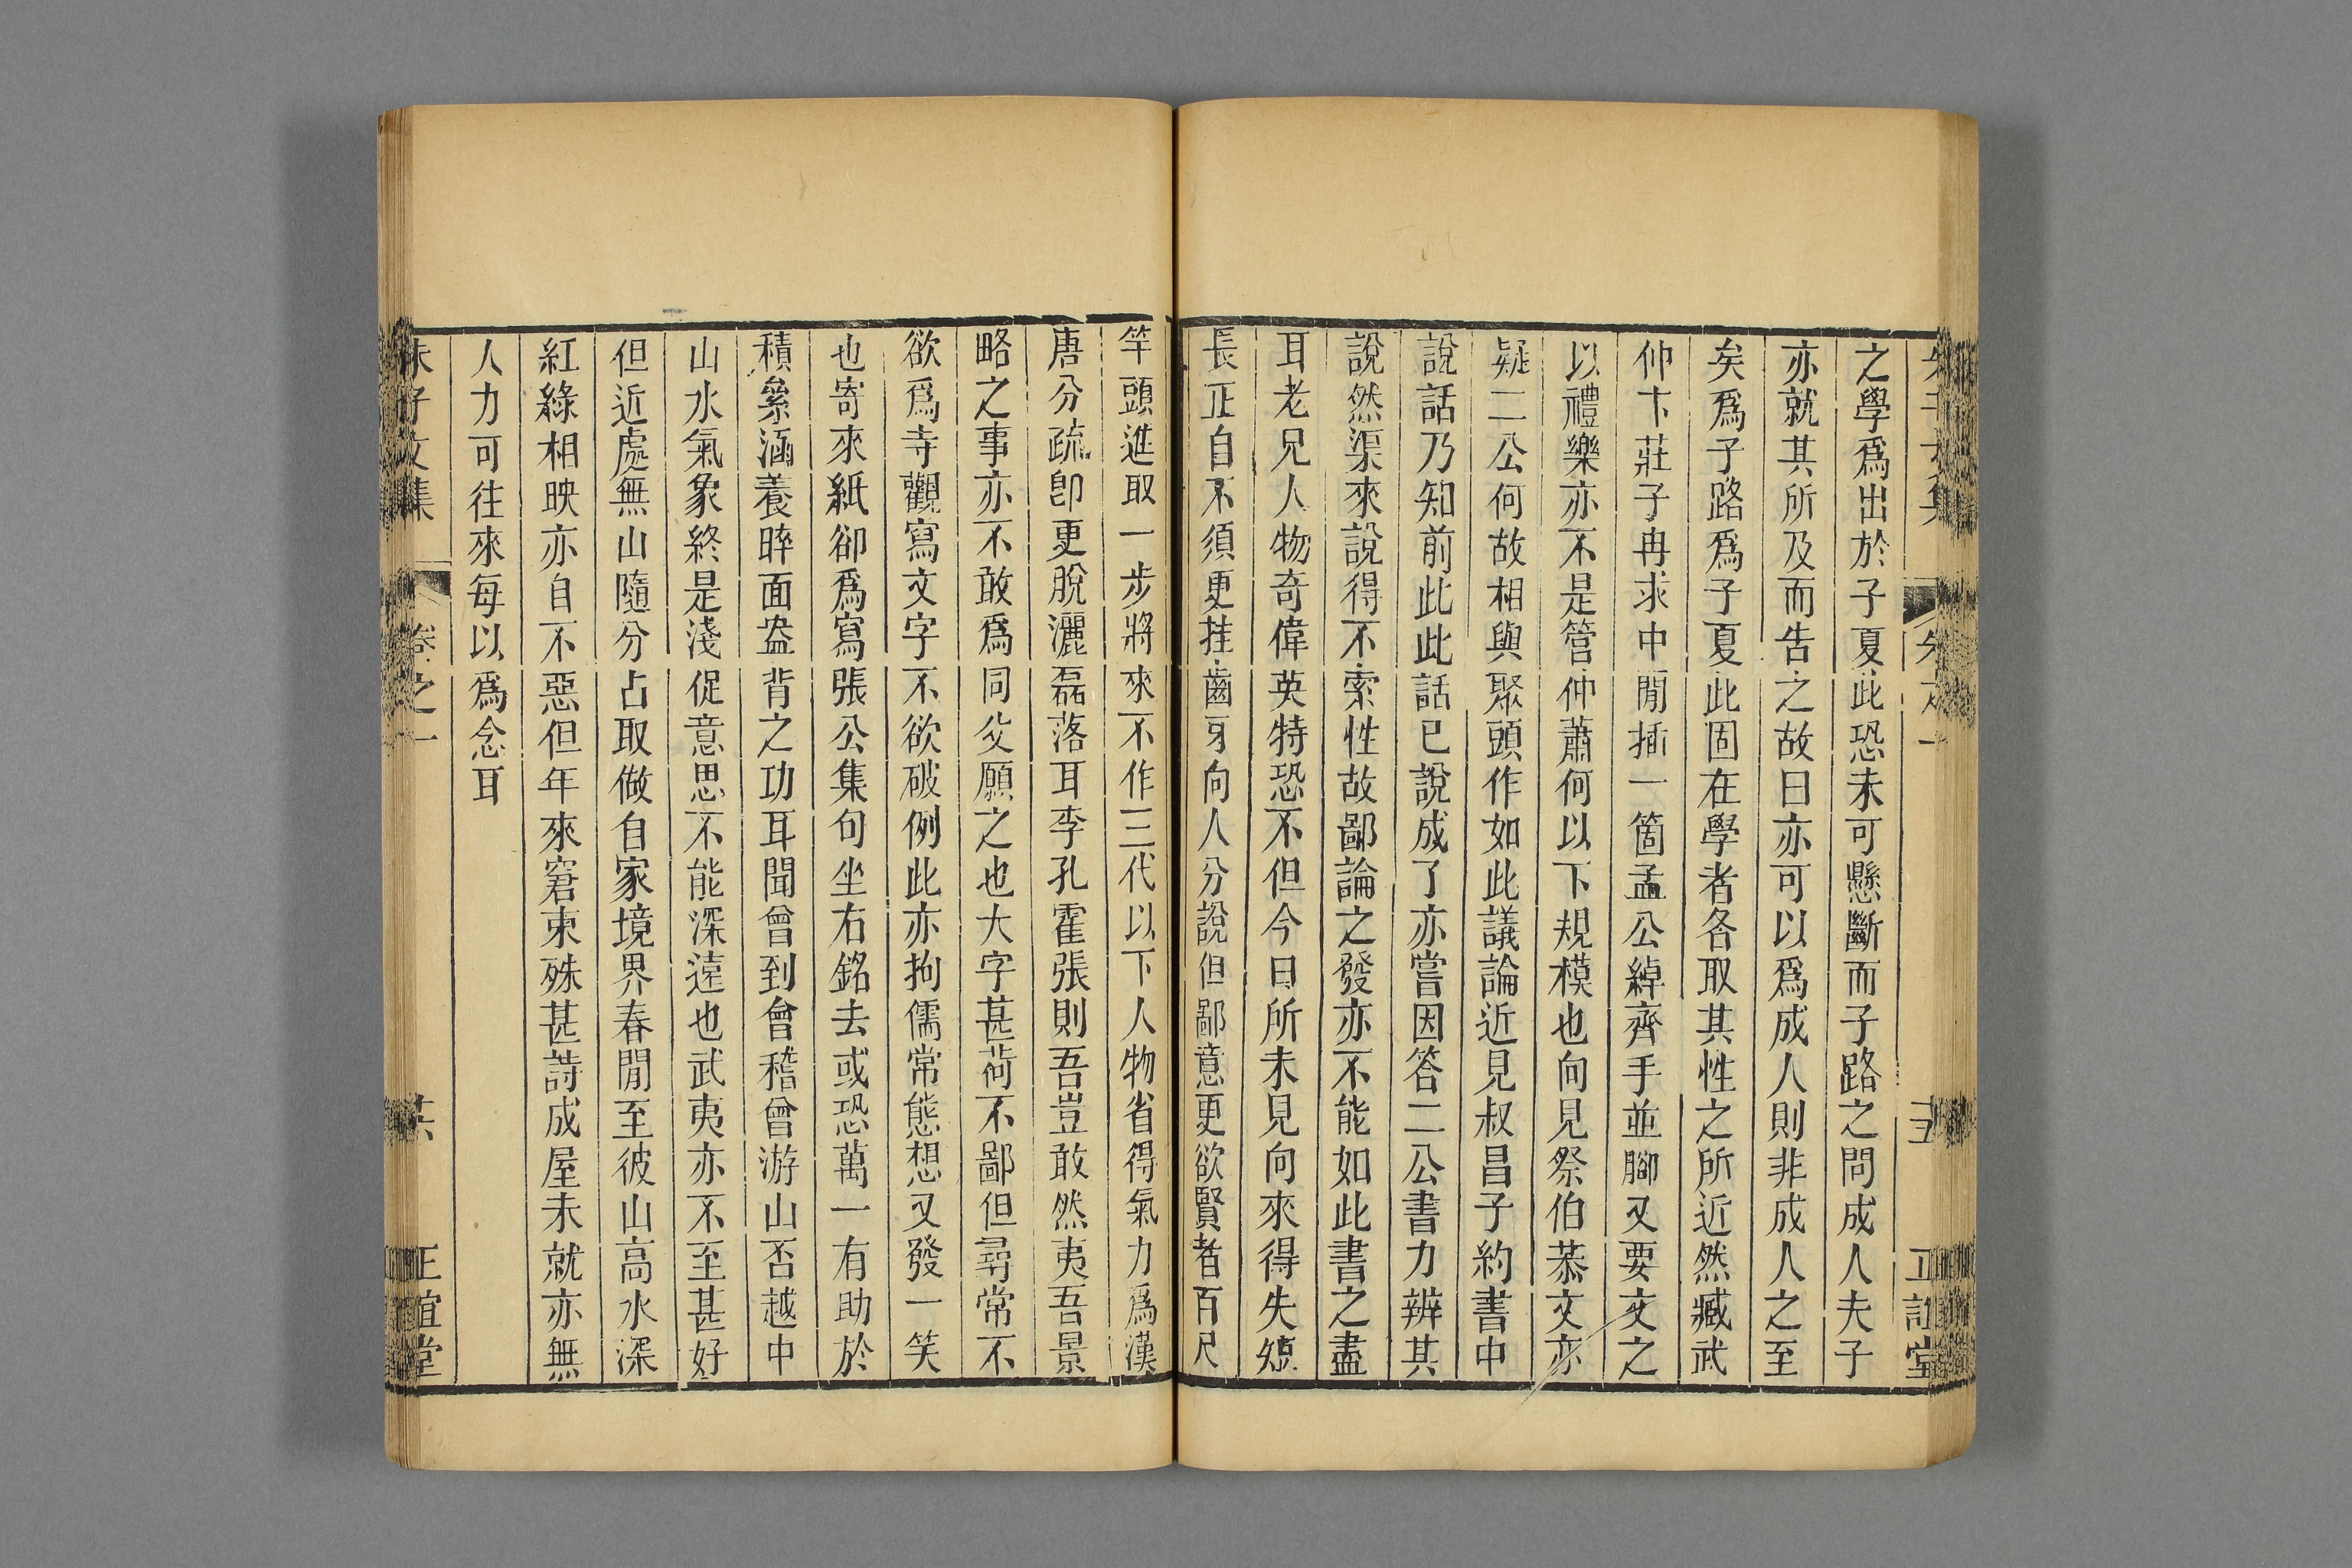 之學爲出於子夏此恐未可懸斷而子路之問成人夫子
亦就其所及而告之故曰亦可以爲成人則非成人之至
矣爲子路爲子夏此固在學者各取其性之所近然臧武
仲卞莊子冉求中閒插一箇孟公綽齊手並腳又要文之
以禮樂亦不是管仲蕭何以下規模也向見祭伯恭文亦
疑二公何故相與聚頭作如此議論近見叔昌子約書中
說話乃知前此此話已說成了亦嘗因答二公書力辨其
說然渠來說得不索性故鄙論之發亦不能如此書之盡
耳老兄人物奇偉英特恐不但今日所未見向來得失短
長正自不須更挂齒牙向人分說但鄙意更欲賢者百尺
竿頭進取一步將來不作三代以下人物省得氣力爲漢
唐分疏卽更脫灑磊落耳李孔霍張則吾豈敢然夷吾景
略之事亦不敢爲同父願之也大字甚荷不鄙但尋常不
欲爲寺觀寫文字不欲破例此亦拘儒常態想又發一笑
也寄來紙卻爲寫張公集句坐右銘去或恐萬一有助於
積絫涵養睟面盎背之功耳聞曾到會稽曾游山否越中
山水氣象終是淺促意思不能深遠也武夷亦不至甚好
但近處無山隨分占取做自家境界春閒至彼山高水深
紅綠相映亦自不惡但年來窘束殊甚詩成屋未就亦無
人力可往來每以爲念耳
朱子文集 卷之一 共 正誼堂